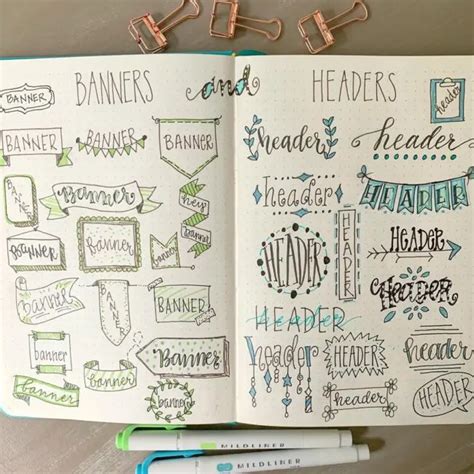 BANNERS and HEADERS
BANNER
BANNER
BANNER
BANNER
BANNER
Banner
hey
Banner
Banner
banner
BANNER
Banner
BANNER
BANNER
banner
Banner
banner
banner
banner
header
header
header
header
HEADER
HEADER
HEADER
HEADER
HEADER
header
HEADER
header
HEADER
header
header
HEADER
MILDLINER
MILDLINER